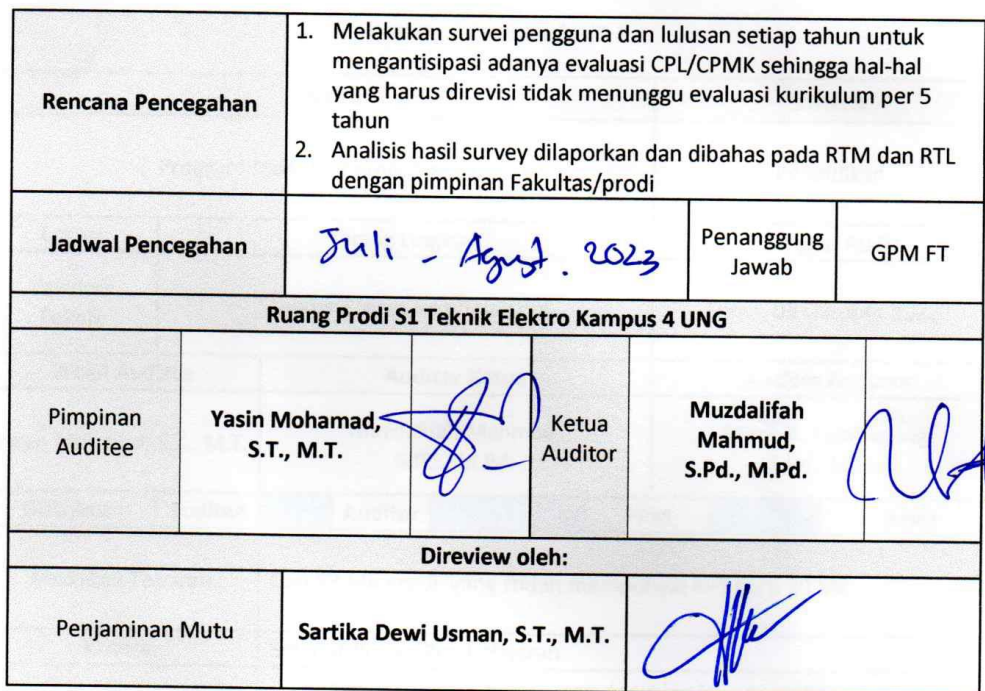 1. Melakukan survei pengguna dan lulusan setiap tahun untuk
mengantisipasi adanya evaluasi CPL/CPMK sehingga hal-hal
Rencana Pencegahan
yang harus direvisi tidak menunggu evaluasi kurikulum per 5
tahun
2. Analisis hasil survey dilaporkan dan dibahas pada RTM dan RTL
dengan pimpinan Fakultas/prodi
Jadwal Pencegahan
Juli - Agust. 2023
Penanggung
Jawab
GPM FT
Ruang Prodi S1 Teknik Elektro Kampus 4 UNG
Pimpinan
Auditee
Yasin Mohamad,
S.T., M.T.
Ketua
Auditor
Muzdalifah
Mahmud,
S.Pd., M.Pd.
Direview oleh:
Penjaminan Mutu
Sartika Dewi Usman, S.T., M.T.